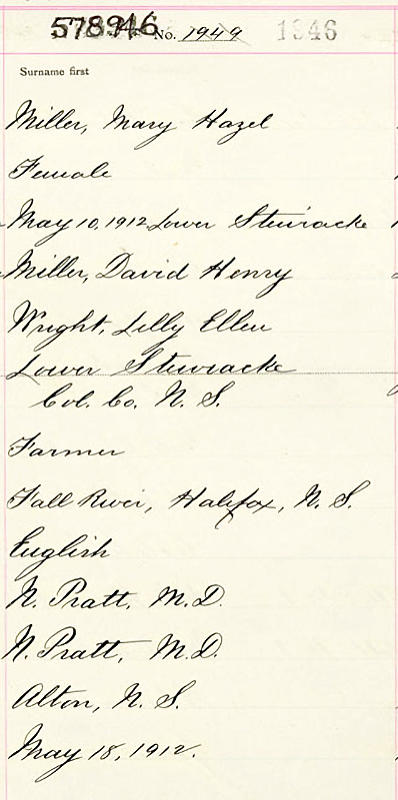 578946 No. 1949 1946
Surname first
Miller, Mary Hazel
Female
May 10, 1912 Lower Stewiacke
Miller, David Henry
Wright, Lilly Ellen
Lower Stewiacke
Col. Co. N. S.
Farmer
Fall River, Halifax, N. S.
English
N. Pratt, M.D.
N. Pratt, M.D.
Alton, N. S.
May 18, 1912.